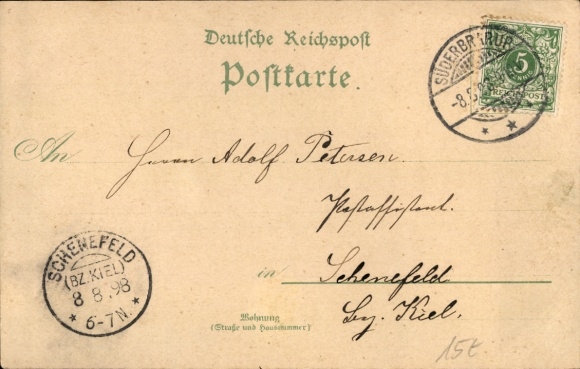 Deutsche Reichspost
Postkarte
SÜDERBRARUP
-8.8.
5
PFENNIG
REICHSPOST
An Herrn Adolf Petersen.
Postassistent.
in Schenefeld
Bz. Kiel.
SCHENEFELD
(BZ.KIEL)
8 8.98
* 6-7N. *
Wohnung
(Straße und Hausnummer)
15t.